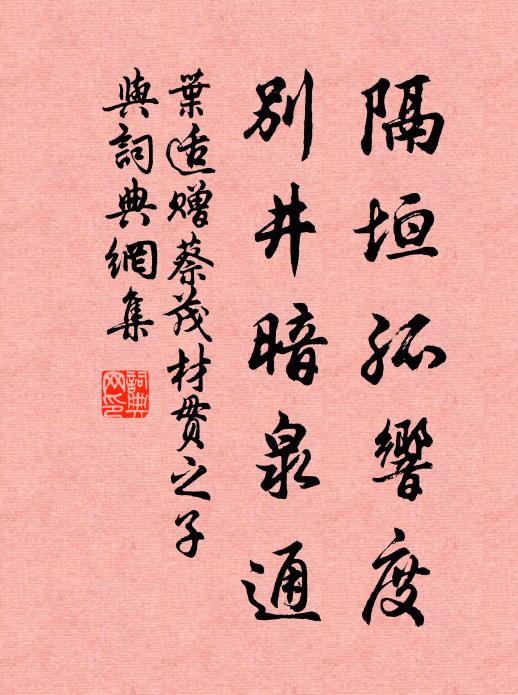 隔垣孤響度
別井暗泉通
葉适贈蔡茂材貫之子
與詞典網集
詞典網印